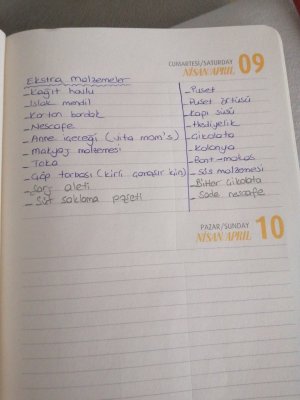 CUMARTESİ/SATURDAY
NİSAN/APRIL 09
Ekstra Malzemeler
- Kağıt havlu
- Islak mendil
- Karton bardak
- Nescafe
- Anne içeceği (vita mom's)
- Makyaj malzemesi
- Toka
- Çöp torbası (kirli çamaşır için)
- Şarj aleti
- Süt saklama poşeti
- Puset
- Puset örtüsü
- Kapı süsü
- Hediyelik
- Çikolata
- Kolonya
- Bant - makas
- süs malzemesi
- Bitter çikolata
- Sade nescafe
PAZAR/SUNDAY
NİSAN/APRIL 10